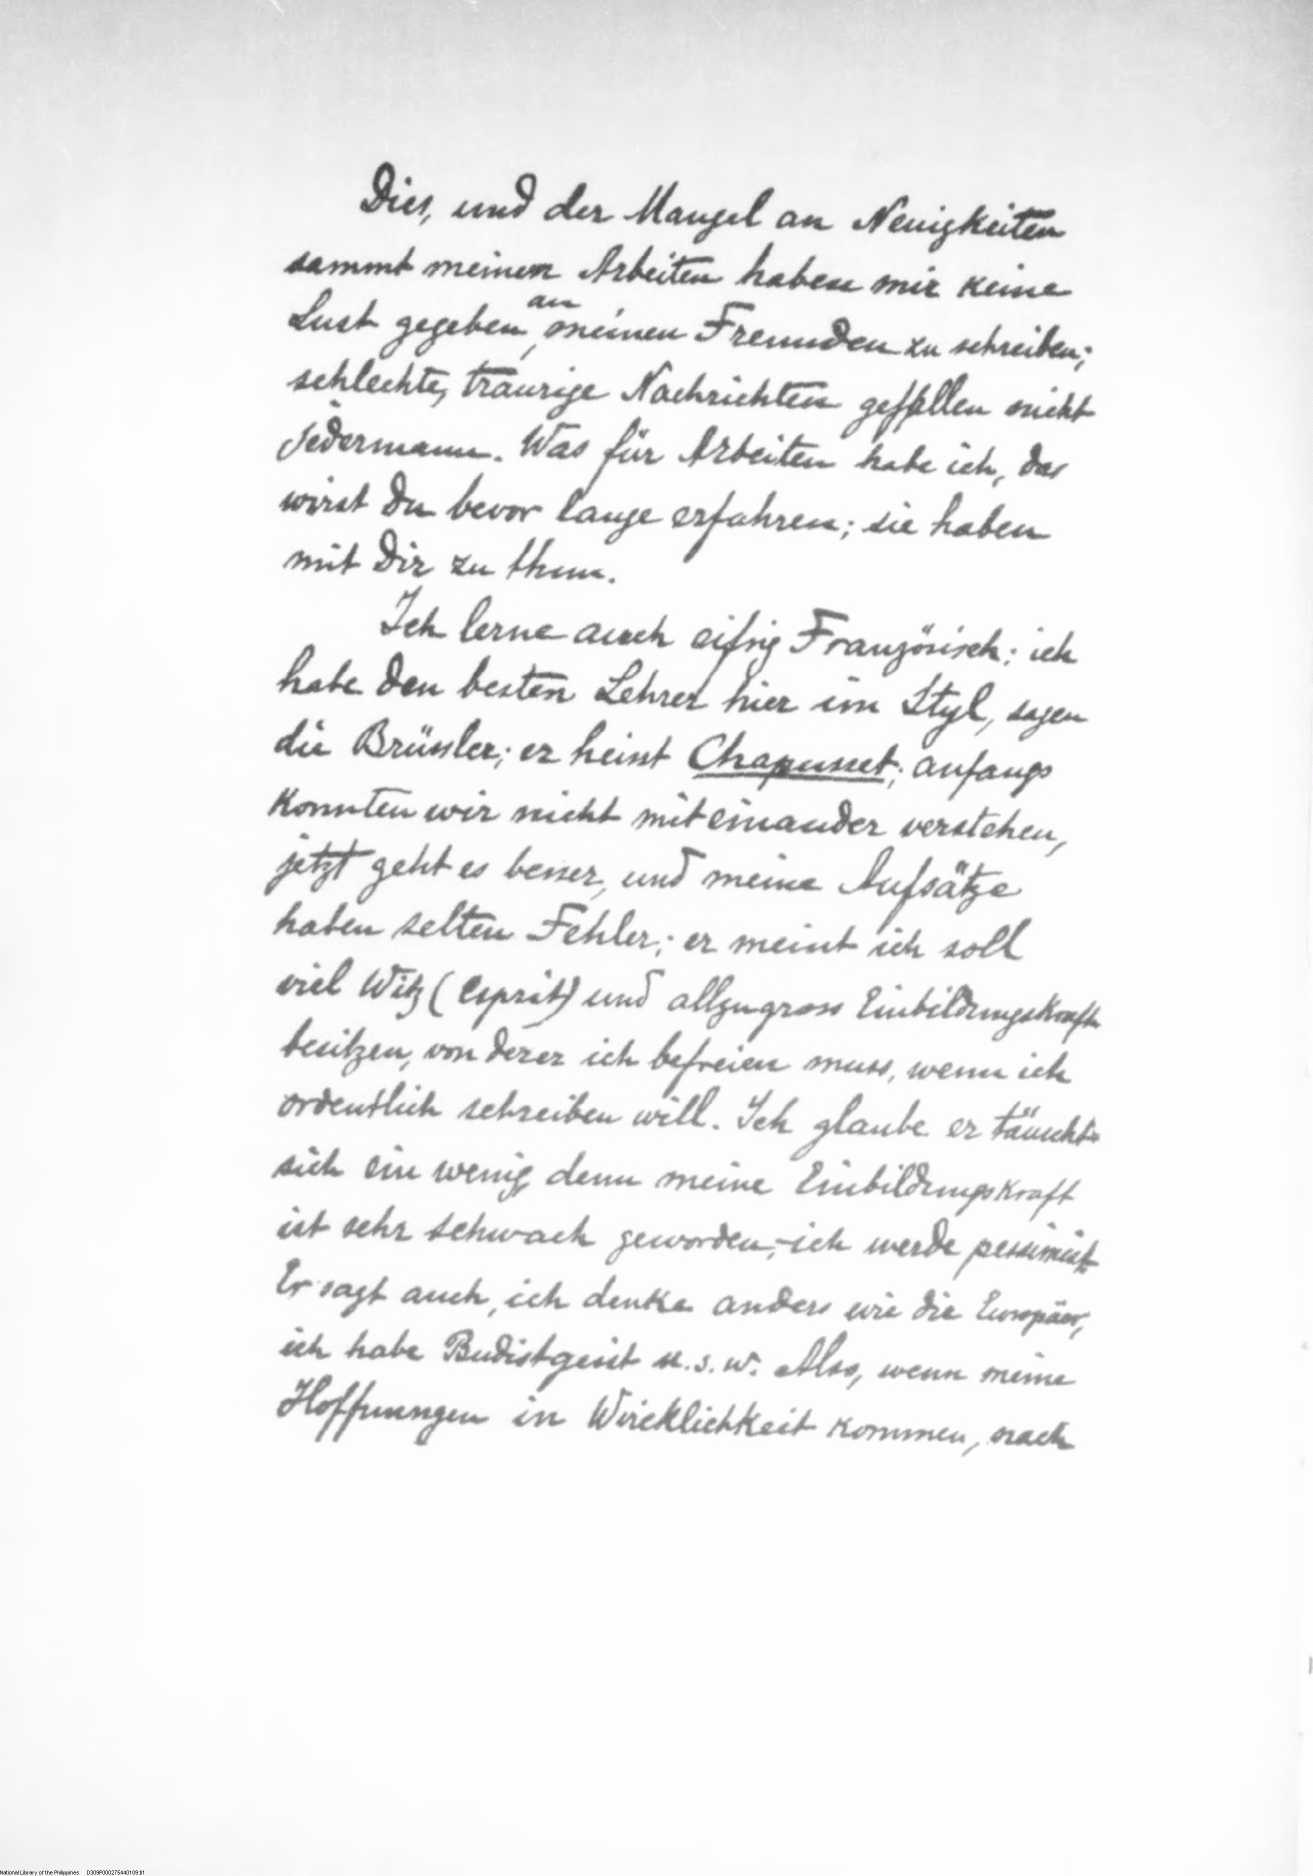 Dies, und der Mangel an Neuigkeiten
sammt meinen Arbeiten haben mir keine
Lust gegeben an meinen Freunden zu schreiben;
schlechte, traurige Nachrichten gefallen nicht
jedermann. Was für Arbeiten habe ich, das
wirst du bevor lange erfahren; sie haben
mit Dir zu thun.
Ich lerne auch eifrig Französisch; ich
habe den besten Lehrer hier im Styl, sagen
die Brüssler; er heisst Chapusset; anfangs
konnten wir nicht miteinander verstehen,
jetzt geht es besser, und meine Aufsätze
haben selten Fehler; er meint ich soll
viel Witz (Esprit) und allzugross Einbildungskraft
besitzen, von derer ich befreien muss, wenn ich
ordentlich schreiben will. Ich glaube er täuscht
sich ein wenig denn meine Einbildungskraft
ist sehr schwach geworden,-ich werde pessimist.
Er sagt auch, ich denke anders wie die Europäer,
ich habe Budistgeist u.s.w. Also, wenn meine
Hoffnungen in Wircklichkeit kommen, nach
National Library of the Philippines